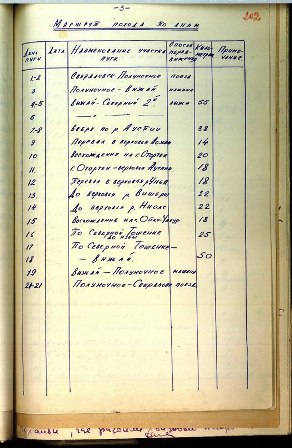 - 3 -
202
Маршрут похода по дням
Дни пути Дата Наименование участка пути Способ передвижения Километраж Примечание
1-2 Свердловск-Полуночное поезд
3 Полуночное - Вижай машина
4-5 Вижай-Северный 2й лыжи 55
6 — " — " —
7-8 вверх по р. Ауспии 32
9 Перевал в верховья Лозьвы 14
10 Восхождение на г. Отортен 20
11 г. Отортен - верховья Ауспии 18
12 Перевал в верховья р. Унья 18
13 До верховья р. Вишеры 22
14 До верховья р. Ниолс 22
15 Восхождение на г. Ойко-Чакур 18
16 По Северной Тошемке до избы 25
17 По Северной Тошемке -
18 - Вижай. 50
19 Вижай - Полуночное машина
20-21 Полуночное - Свердловск поезд